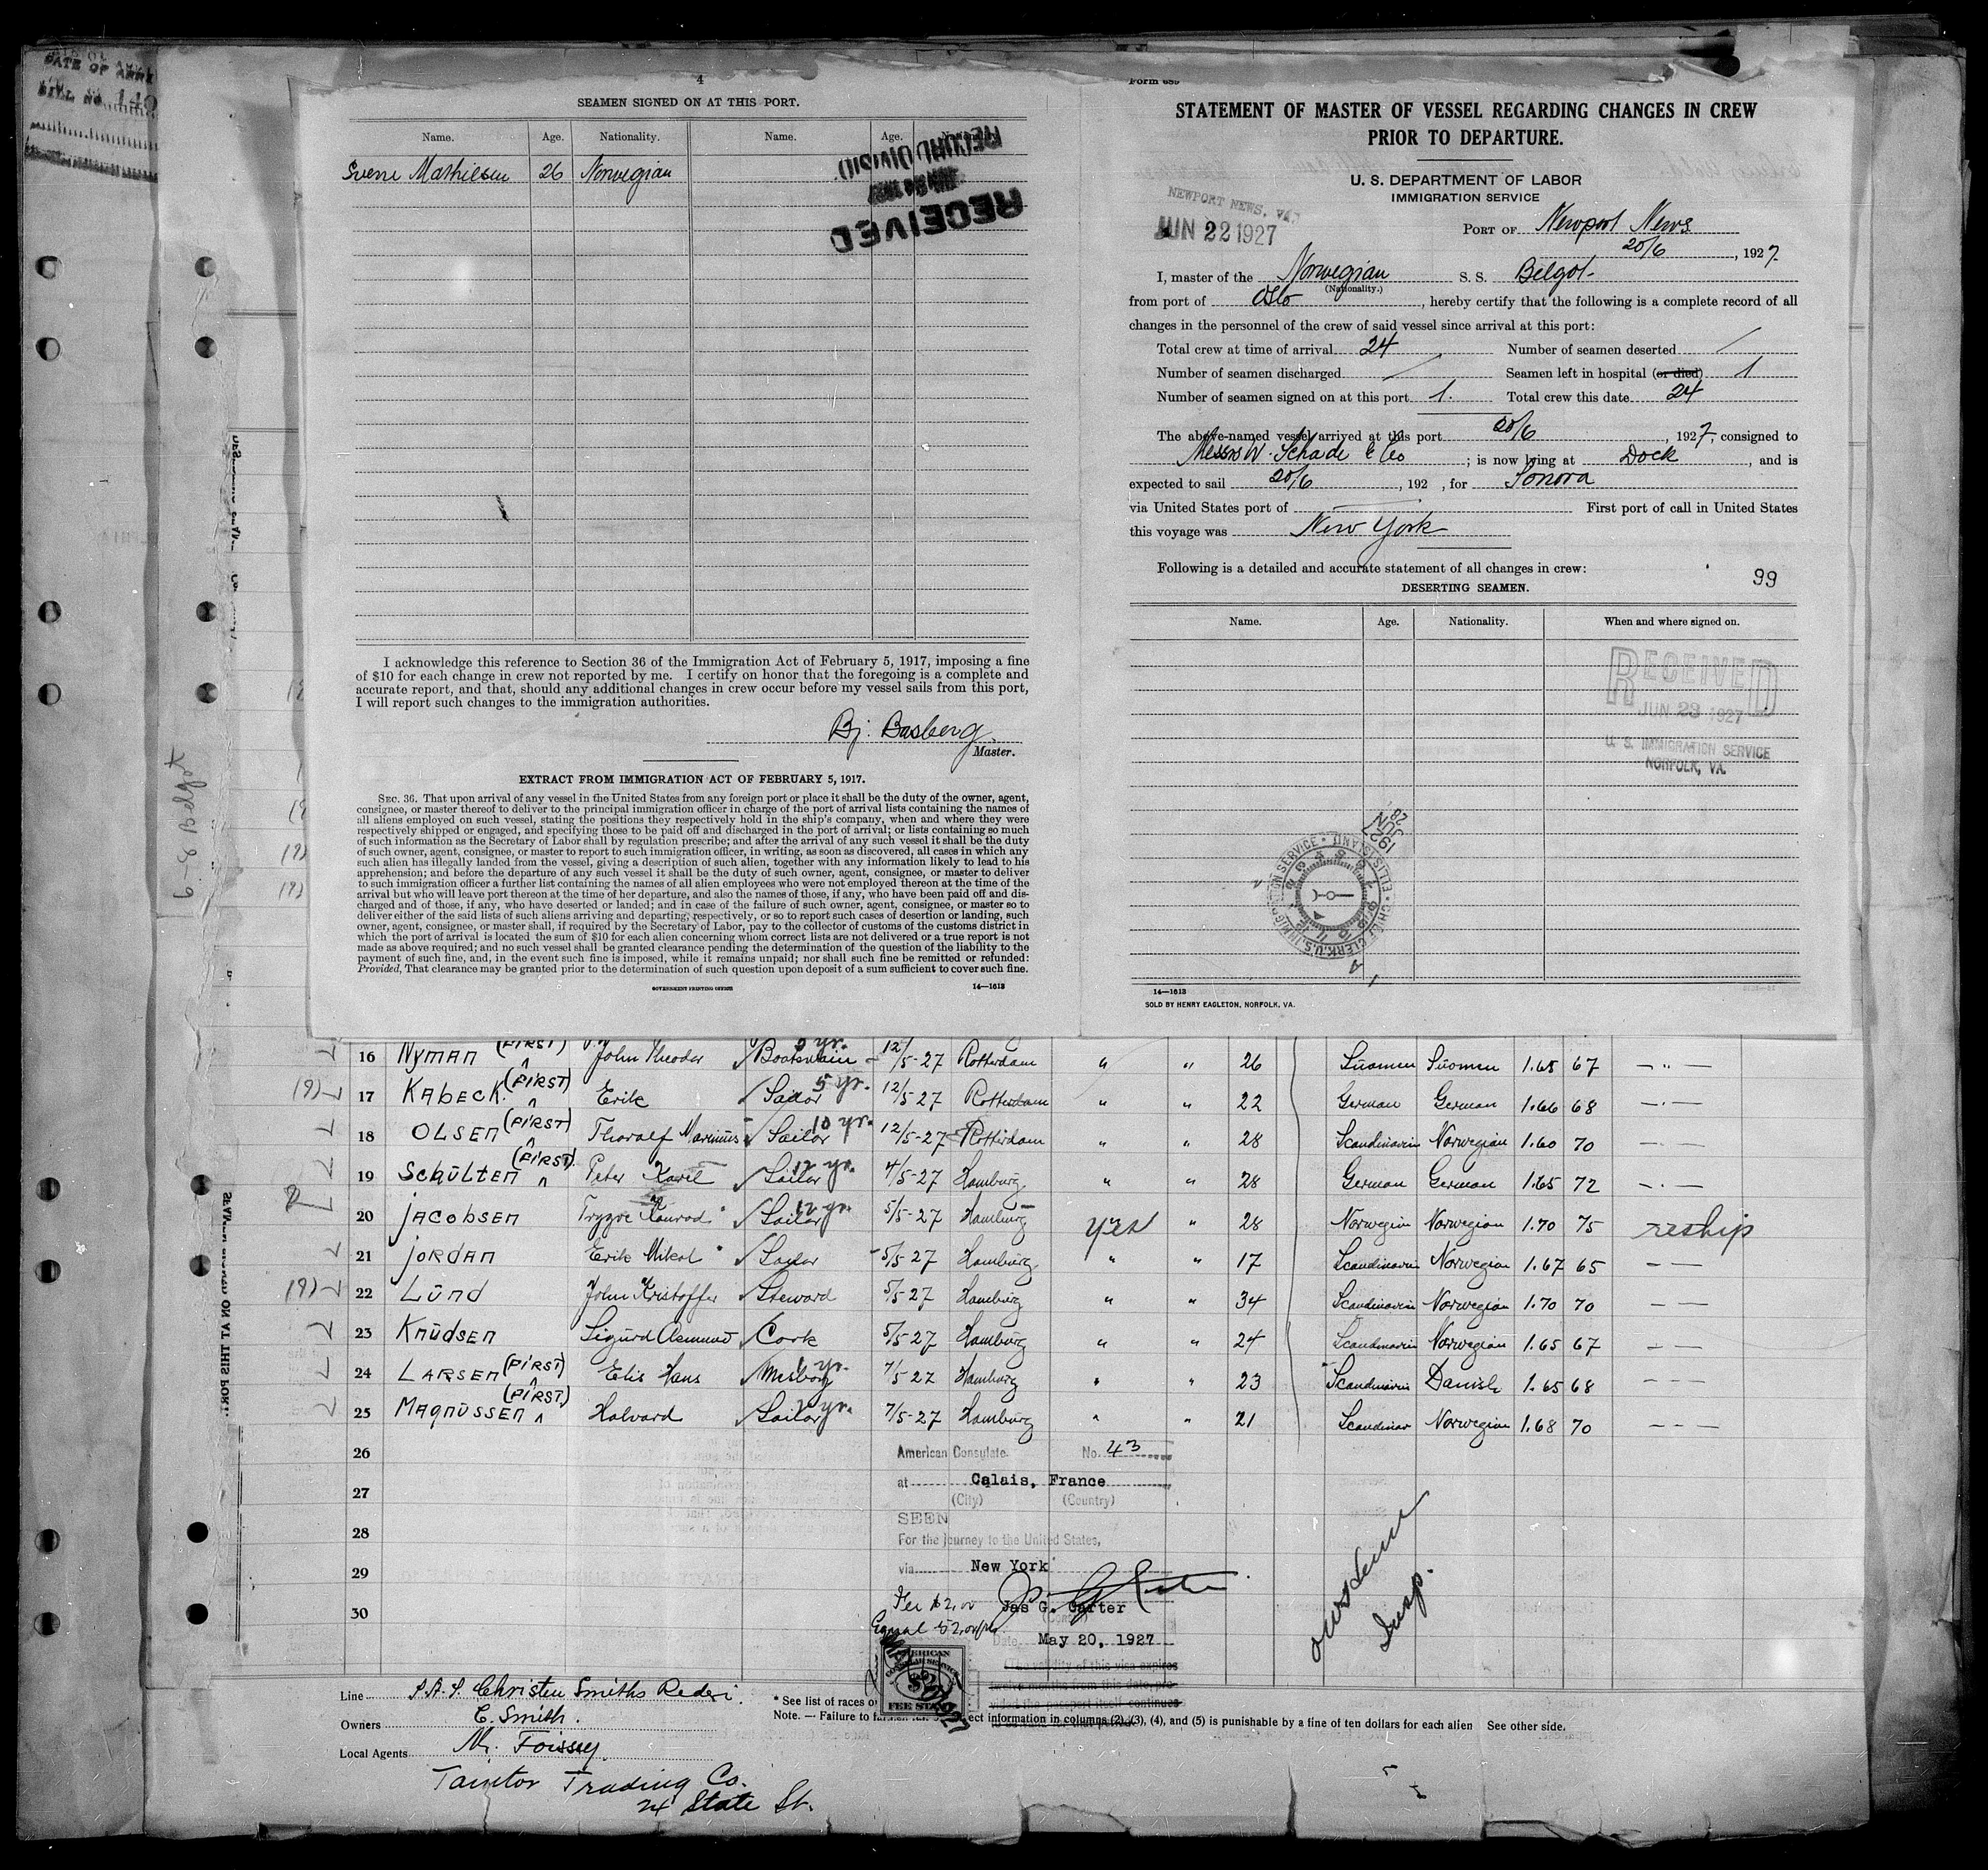 4
SEAMEN SIGNED ON AT THIS PORT.
Name. Age. Nationality. Name. Age. Nationality.
Sverre Mathiesen 26 Norwegian
RECORD DIVISION
RECEIVED
I acknowledge this reference to Section 36 of the Immigration Act of February 5, 1917, imposing a fine
of $10 for each change in crew not reported by me. I certify on honor that the foregoing is a complete and
accurate report, and that, should any additional changes in crew occur before my vessel sails from this port,
I will report such changes to the immigration authorities.
Bj. Basberg
Master.
EXTRACT FROM IMMIGRATION ACT OF FEBRUARY 5, 1917.
SEC. 36. That upon arrival of any vessel in the United States from any foreign port or place it shall be the duty of the owner, agent,
consignee, or master thereof to deliver to the principal immigration officer in charge of the port of arrival lists containing the names of
all aliens employed on such vessel, stating the positions they respectively hold in the ship's company, when and where they were
respectively shipped or engaged, and specifying those to be paid off and discharged in the port of arrival; or lists containing so much
of such information as the Secretary of Labor shall by regulation prescribe; and after the arrival of any such vessel it shall be the duty
of such owner, agent, consignee, or master to report to such immigration officer, in writing, as soon as discovered, all cases in which any
such alien has illegally landed from the vessel, giving a description of such alien, together with any information likely to lead to his
apprehension; and before the departure of any such vessel it shall be the duty of such owner, agent, consignee, or master to deliver
to such immigration officer a further list containing the names of all alien employees who were not employed thereon at the time of the
arrival but who will leave port thereon at the time of her departure, and also the names of those, if any, who have been paid off and dis-
charged and of those, if any, who have deserted or landed; and in case of the failure of such owner, agent, consignee, or master so to
deliver either of the said lists of such aliens arriving and departing, respectively, or so to report such cases of desertion or landing, such
owner, agent, consignee, or master shall, if required by the Secretary of Labor, pay to the collector of customs of the customs district in
which the port of arrival is located the sum of $10 for each alien concerning whom correct lists are not delivered or a true report is not
made as above required; and no such vessel shall be granted clearance pending the determination of the question of the liability to the
payment of such fine, and, in the event such fine is imposed, while it remains unpaid; nor shall such fine be remitted or refunded:
Provided, That clearance may be granted prior to the determination of such question upon deposit of a sum sufficient to cover such fine.
GOVERNMENT PRINTING OFFICE 14—1613
Form 689
STATEMENT OF MASTER OF VESSEL REGARDING CHANGES IN CREW
PRIOR TO DEPARTURE.
U. S. DEPARTMENT OF LABOR
IMMIGRATION SERVICE
NEWPORT NEWS, VA.
JUN 22 1927
PORT OF Newport News
20/6, 1927.
I, master of the Norwegian S. S. Belgot
(Nationality.)
from port of Oslo, hereby certify that the following is a complete record of all
changes in the personnel of the crew of said vessel since arrival at this port:
Total crew at time of arrival 24 Number of seamen deserted /
Number of seamen discharged / Seamen left in hospital (or died) 1
Number of seamen signed on at this port 1. Total crew this date 24
The above-named vessel arrived at this port 20/6, 1927, consigned to
Messrs W. Schade & Co; is now lying at Dock, and is
expected to sail 20/6, 192 , for Sonora
via United States port of First port of call in United States
this voyage was New York
Following is a detailed and accurate statement of all changes in crew:
99
DESERTING SEAMEN.
Name. Age. Nationality. When and where signed on.
RECEIVED
JUN 23 1927
U. S. IMMIGRATION SERVICE
NORFOLK, VA.
CHIEF CLERK, U.S. IMMIGRATION SERVICE • ELLIS ISLAND
1927 JUN 28
14—1613
SOLD BY HENRY EAGLETON, NORFOLK, VA.
6-8 Belgot
16 Nyman (FIRST) John Theodor Boatswain 5 yr. 12/5-27 Rotterdam " " 26 Suomen Suomen 1.65 67 — " —
17 Kabeck (FIRST) Erik Sailor 5 yr. 12/5-27 Rotterdam " " 22 German German 1.66 68 — · —
18 OLSEN (FIRST) Thoralf Marinus Sailor 10 yr. 12/5-27 Rotterdam " " 28 Scandinavin Norwegian 1.60 70 — · —
19 Schülten (FIRST) Peter Karil Sailor 12 yr. 4/5-27 Hamburg " " 28 German German 1.65 72 — · —
20 Jacobsen Trygve Konrad Sailor 12 yr. 5/5-27 Hamburg yes " 28 Norwegian Norwegian 1.70 75 reship
21 Jordan Erik Mikal Sailor 5/5-27 Hamburg " " 17 Scandinavin Norwegian 1.67 65 — —
22 Lünd John Kristoffer Steward 5/5-27 Hamburg " " 34 Scandinavin Norwegian 1.70 70 — —
23 Knüdsen Sigurd Asmund Cook 5/5-27 Hamburg " " 24 Scandinavin Norwegian 1.65 67 — —
24 LARSEN (FIRST) Elis Hans Messboy yr. 7/5-27 Hamburg " " 23 Scandinavin Danish 1.65 68 — — —
25 Magnüssen (FIRST) Halvard Sailor yr. 7/5-27 Hamburg " " 21 Scandinav Norwegian 1.68 70 — — —
26
27
28
29
30
American Consulate No. 43
at Calais, France
(City) (Country)
SEEN
For the journey to the United States,
via New York
Fee $2.00
Jas G. Carter
Date May 20, 1927
The validity of this visa expires
twelve months from this date, pro-
vided the passport itself continues
AMERICAN CONSULAR SERVICE
$2
FEE STAMP
Insp.
Line Christen Smiths Rederi.
Owners C. Smith.
Local Agents M. Foissey
Taintor Trading Co.
24 State St.
* See list of races
Note. — Failure to information in columns (2), (3), (4), and (5) is punishable by a fine of ten dollars for each alien See other side.